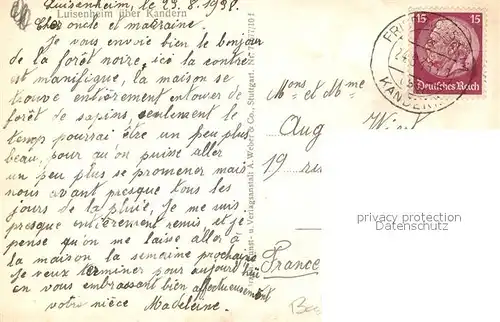 Luisenheim, le 23.8.193
Luisenheim über Kandern
Cher oncle et marraine.
Je vous envie bien le bonjour
de la forêt noire, ici la contré
est manifique, la maison se
trouve entièrement entourer de
forêt de sapins, seulement le
temps pourrai être un peu plus
beau, pour qu'on puisse aller
un peu plus se promener mais
nous avont presque tous les
jours de la pluie, Je me suis
presque entièrement remis, et je
pense qu'on me laisse aller à
la maison la semaine prochaine
Je veux terminer pour aujourd'hui
en vous embrassant bien affectueusement
votre nièce Madeleine.
Kunst- u. Verlagsanstalt A. Weber & Co., Stuttgart.
Mons et Mme
Aug
19 rue
France
15 15
Deutsches Reich
KANDERN
privacy protection
Datenschutz